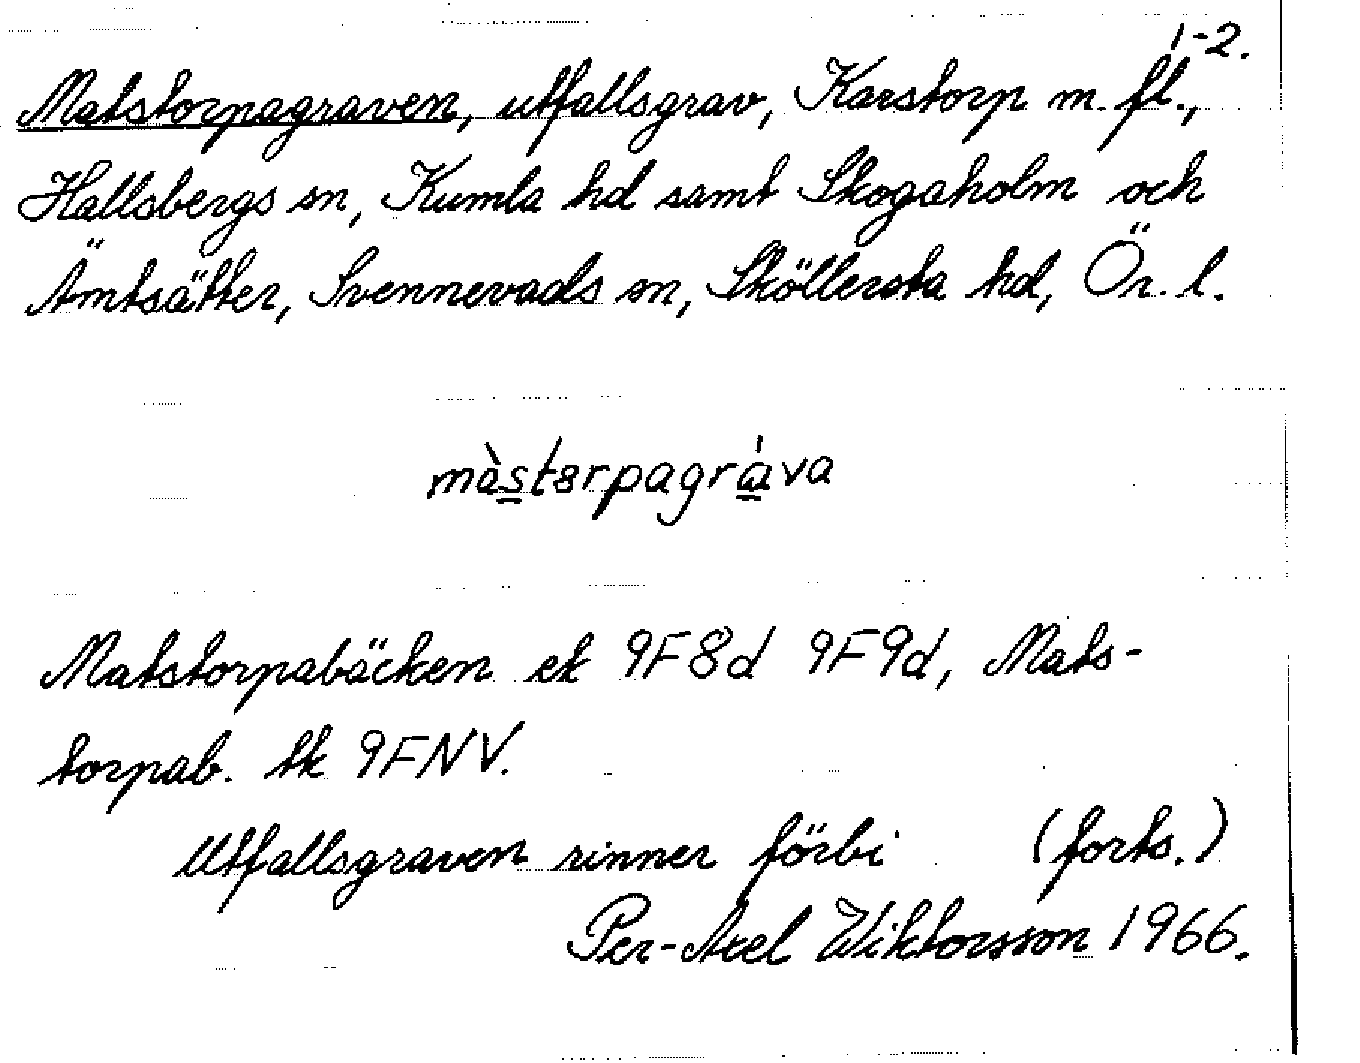 1-2.
Matstorpagraven, utfallsgrav, Karstorp m. fl.,
Hallsbergs sn, Kumla hd samt Skogaholm och
Ämtsätter, Svennevads sn, Sköllersta hd, Ör. l.
màstərpagráva
Matstorpabäcken ek 9F8d 9F9d, Mats-
torpab. tk 9FNV.
Utfallsgraven rinner förbi (forts.)
Per-Axel Wiktorsson 1966.